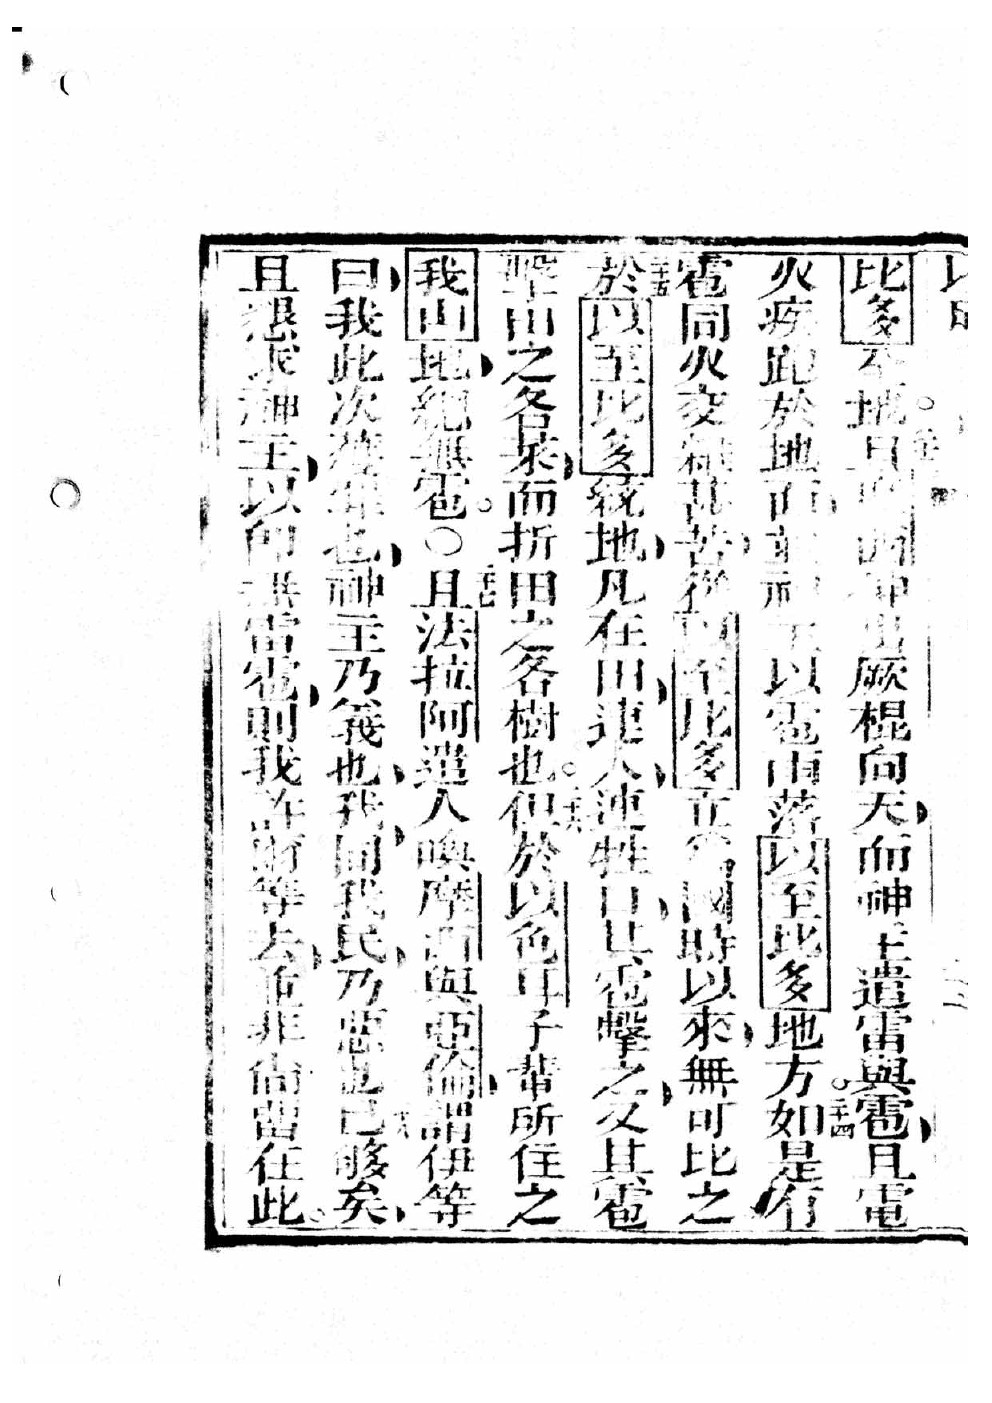 比多全地且摩西伸出厥棍向天而神主遣雷與雹二十四且電
火疾跑於地而神主以雹雨落以至比多地方如是有
雹同火交甚苦從以至比多立為國時以來無可比之
二十五於以至比多統地凡在田連人連牲口其雹擊之又其雹
擊田之各菜而折田之各樹也二十六但於以色耳子輩所住之
我山地絕無雹○二十七且法拉阿遣人喚摩西與亞倫謂伊等
曰我此次獲罪也神主乃義也我同我民乃惡也二十八已够矣
且懇求神主以即無雷雹則我許爾等去並非尚留在此